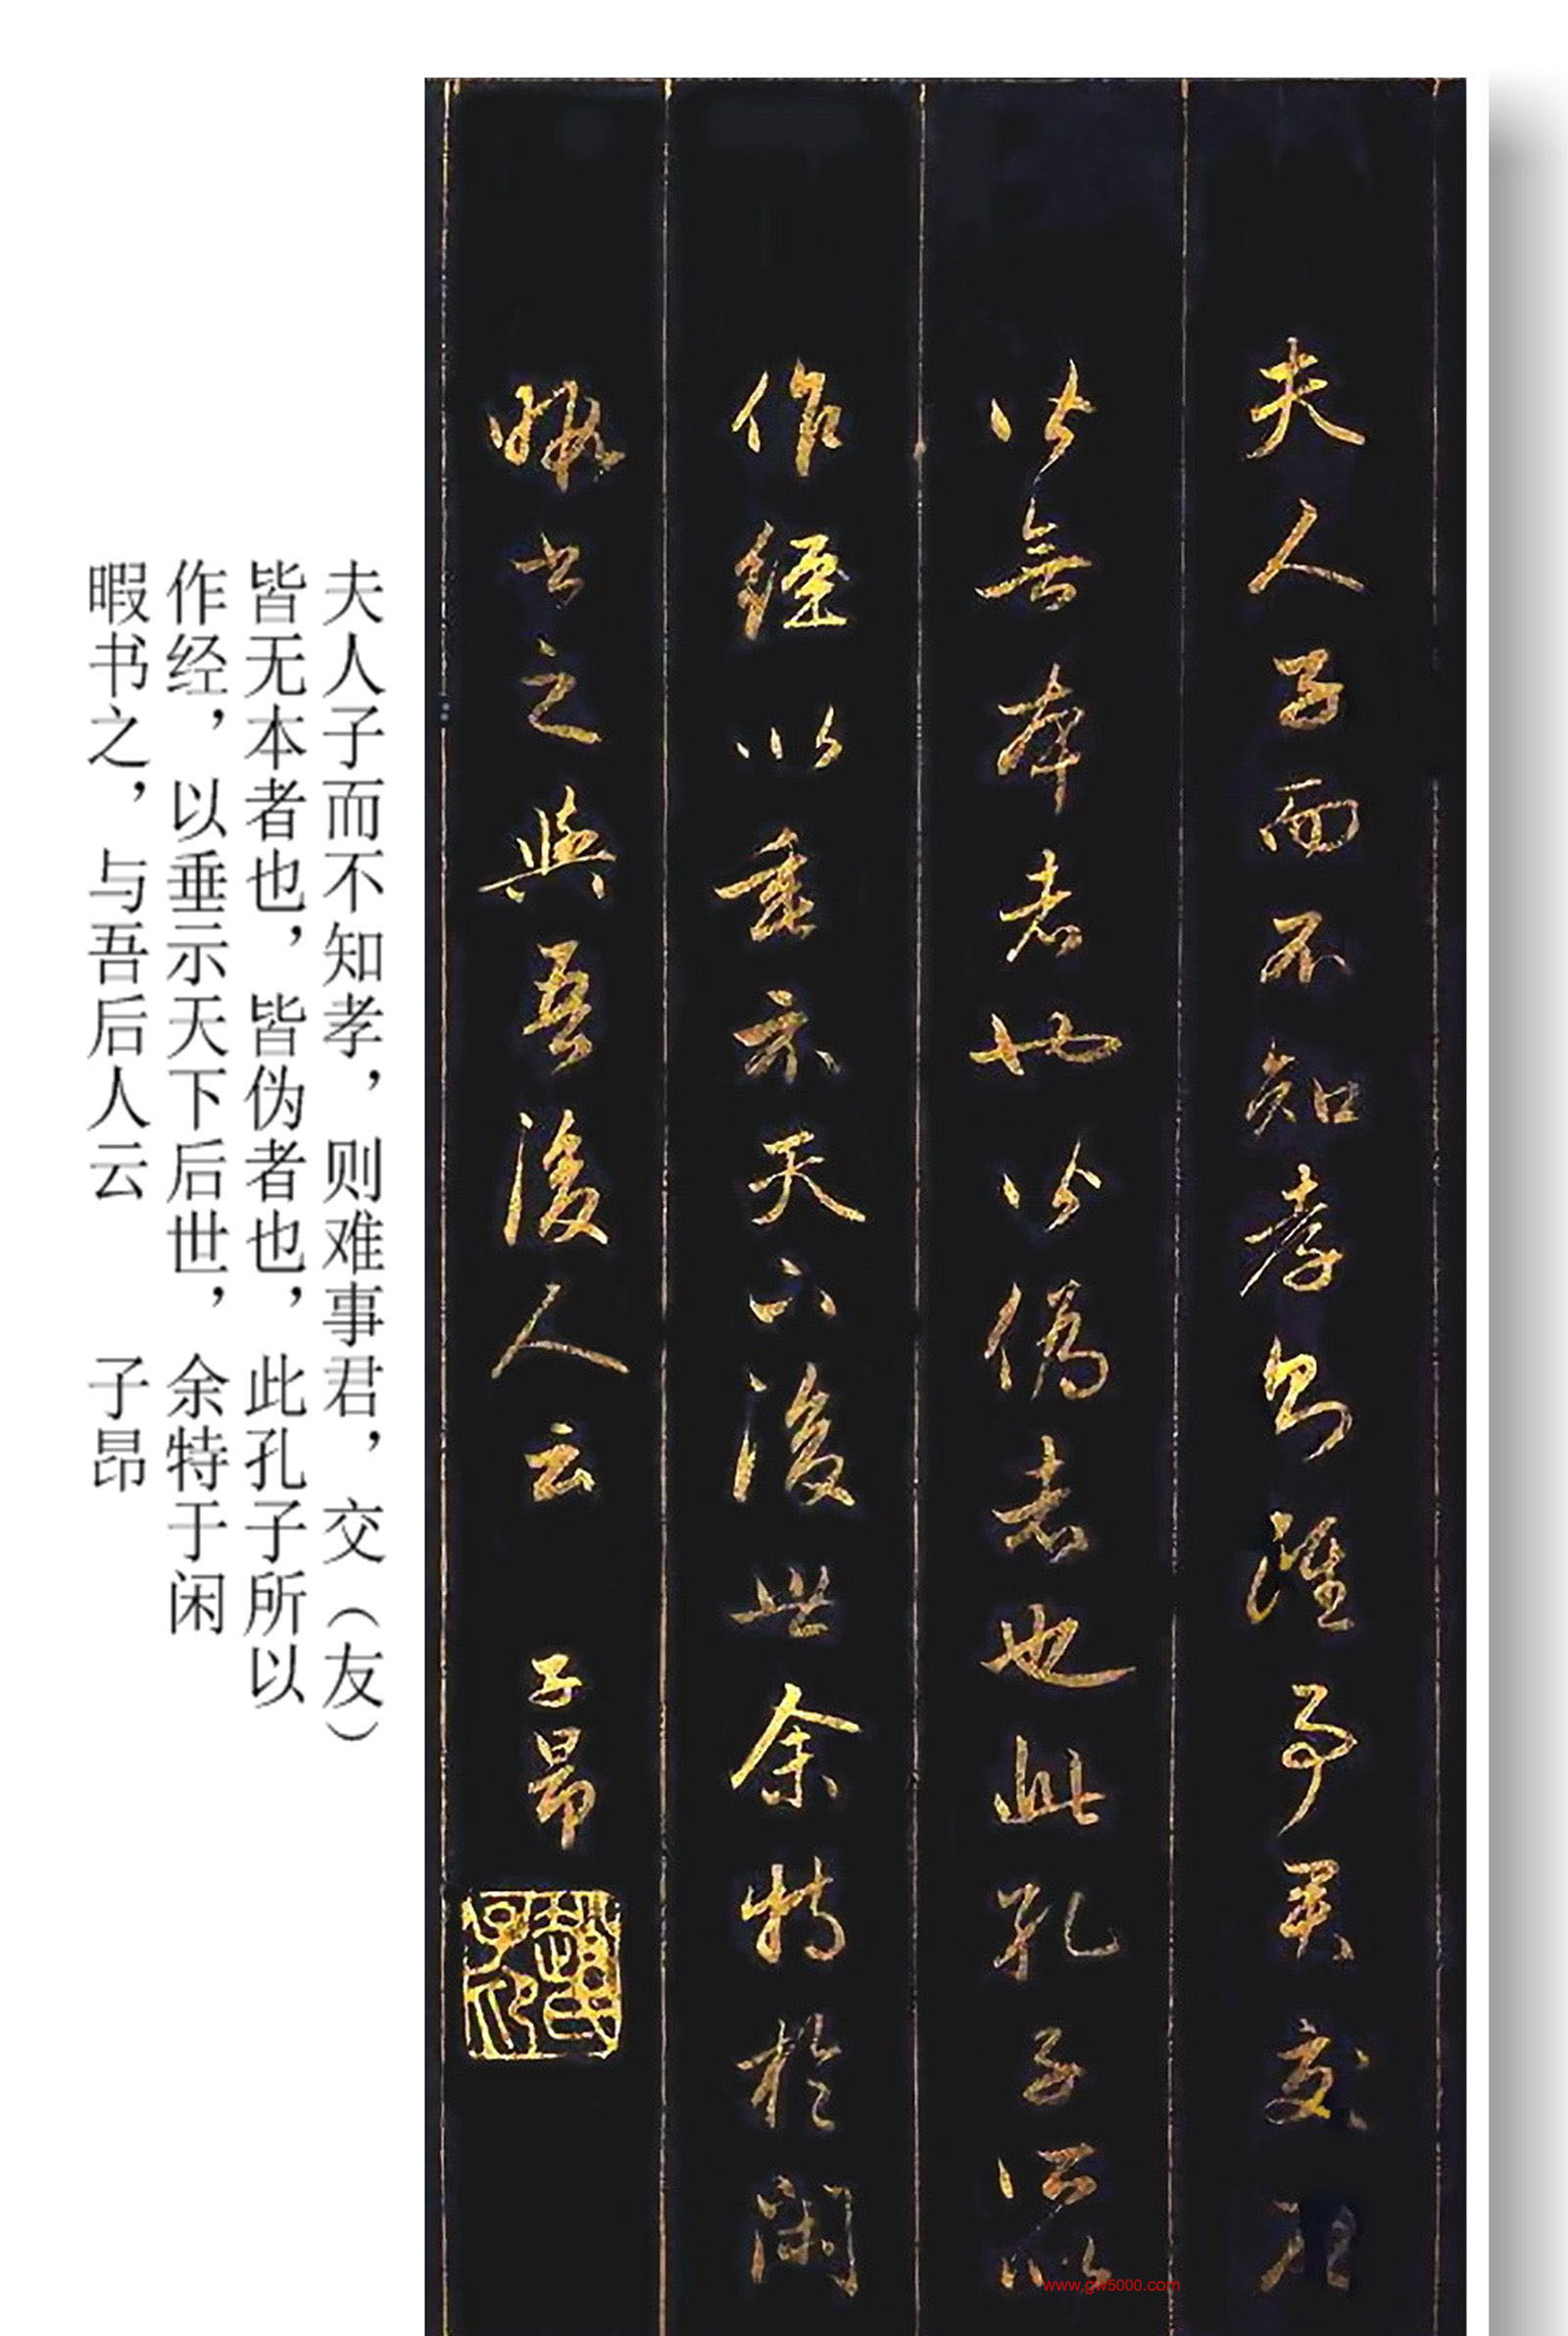 夫人子而不知孝則難事君交
皆無本者也皆偽者也此孔子所以
作經以垂示天下後世余特於閑
暇书之與吾後人云 子昂
夫人子而不知孝，则难事君，交（友）
皆无本者也，皆伪者也，此孔子所以
作经，以垂示天下后世，余特于闲
暇书之，与吾后人云 子昂
www.gw5000.com